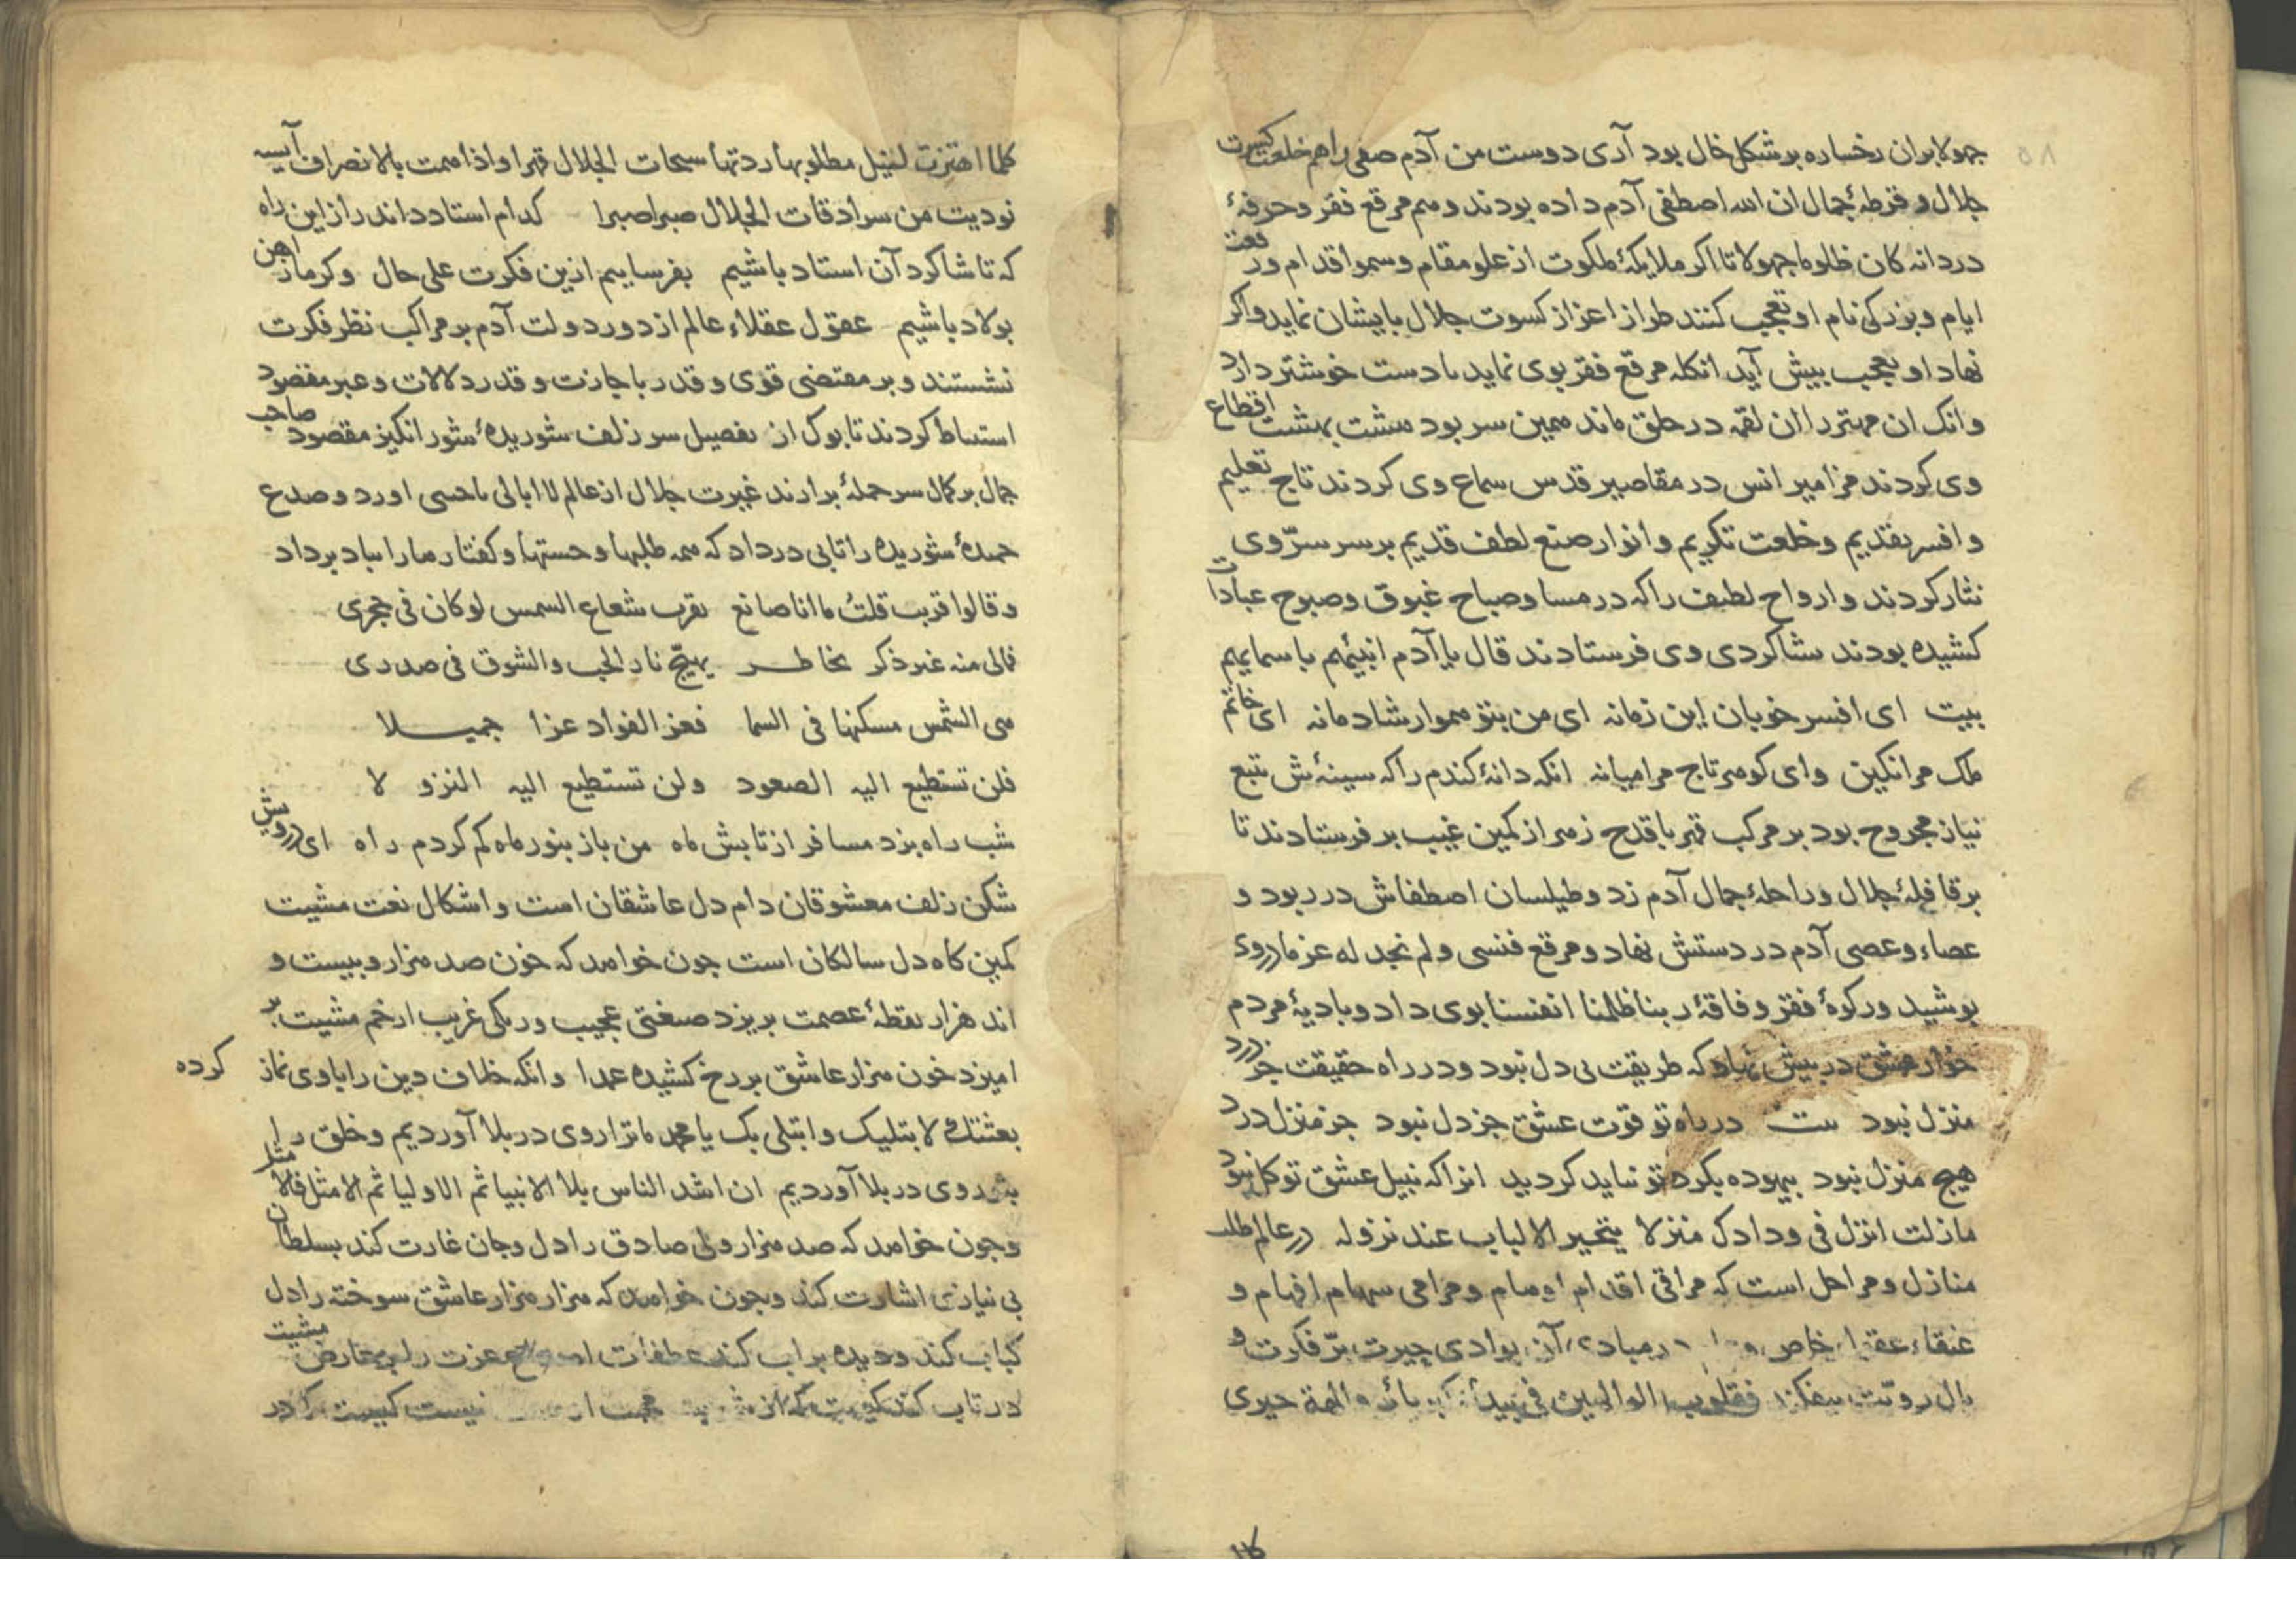 ۵۸
جهولا بران رخساره بر شکل خال بود آری دوست من آدم صفی را هم خلعت کسوت
جلال و قرطهٔ جمال ان الله اصطفی آدم داده بودند و هم مرقع فقر و حرفهٔ
دردانه کان ظلوما جهولا تا اکر ملایکهٔ ملکوت از علو مقام و سمو اقدام و رفعت
ایام و بزرکی نام او تعجب کنند طراز اعزاز کسوت جلال بایشان نماید واکر
نهاد او بعجب بیش آید انکله مرقع فقر بوی نماید تا دست خوشتر دارد
وانک ان مهتر را ان لقمه در حلق ماند همین سر بود هشت بهشت اقطاع
وی کردند مزامیر انس در مقاصیر قدس سماع وی کردند تاج تعلیم
و افسر تقدیم و خلعت تکریم و انوار صنع لطف قدیم بر سر سرّ وی
نثار کردند و ارواح لطیف را که در مسا و صباح غبوق و صبوح عبادات
کشیده بودند بشاکردی وی فرستادند قال یا آدم انبئهم باسمایهم
بیت ای افسر خوبان این زمانه ای من بتو هموار شادمانه ای خاتم
ملک مرا نکین وای کوهر تاج مرا میانه انکه دانهٔ کندم را که سینهٔش تیغ
نیاز مجروح بود بر مرکب قهر با قدح زهر از کمین غیب بر فرستادند تا
بر قافلهٔ جلال و راحلهٔ جمال آدم زد و طیلسان اصطفاش در ربود و
عصاء و عصی آدم در دستش نهاد و مرقع فنسی و لم نجد له عزما در وی
بوشید و رکوهٔ فقر و فاقهٔ ربنا ظلمنا انفسنا بوی داد و بادیهٔ مردم
خوار عشق در بیش نهاد که طریقت بی دل نبود و در راه حقیقت جز درد
منزل نبود بیت در راه تو قوت عشق جز دل نبود جز منزل درد
هیچ منزل نبود بیهوده بکرد تو نباید کردید انرا که نبیل عشق تو کل نبود
ما زلت انزل فی ودادک منزلا یتحیر الالباب عند نزوله در عالم طلب
منازل و مراحل است که مراقی اقدام اوهام و مرامی سهام افهام و
عنقاء خاص در مبادی آن بوادی حیرت برّ فکرت و
بال رویت بیفکند فقلوب الوالهین فی والهة حیری
کلما اهتزت لنیل مطلوبها ردتها سبحات الجلال قهرا و اذا همت بالانصراف آیسه
نودیت من سرادقات الجلال صبرا صبرا کدام استاد داند راز این راه
که تا شاکرد آن استاد باشیم بفرساییم ازین فکرت علی حال و کرما ز اهن
بولاد باشیم عقول عقلاء عالم از دور دولت آدم بر مراکب نظر فکرت
نشستند و بر مقتضی قوی و قدر با جازت و قدر دلالات و عبر مقصود
استنباط کردند تا بوک از تفصیل سر زلف شوریدهٔ شور انکیز مقصود صاحب
جمال بر کمال سر حملهٔ برارند غیرت جلال از عالم لا ابالی تاختی اورد و صدغ
خمدهٔ شوریده را تابی در داد که همه طلبها و جستها و کفتار ما را بباد برداد
وقالوا قریب قلت ما انا صانع بقرب شعاع الشمس لو کان فی حجری
فمالی منه غیر ذکر بخاطر یهیّج نار الحب والشوق فی صدری
هی الشمس مسکنها فی السما فعز الفواد عزا جمیلا
فلن تستطیع الیه الصعود ولن تستطیع الیه النزولا
شب راه بزد مسافر از تابش ماه من باز بنور ماه کم کردم راه ای درویش
شکن زلف معشوقان دام دل عاشقان است و اشکال نعت مشیت
کمین کاه دل سالکان است جون خواهد که خون صد هزار و بیست و
اند هزار نقطهٔ عصمت بریزد صنعتی عجیب و رنکی غریب از خم مشیت بر
امیزد خون هزار عاشق بر رخ کشیده عمدا وانکه خلمان دین را با وی نماز کرده
بعثتک لابتلیک وابتلی بک یا محمد ما ترا روی در بلا آوردیم و خلق را
بتو روی در بلا آوردیم ان اشد الناس بلاء الانبیا ثم الاولیا ثم الامثل فالامثل
و جون خواهد که صد هزار ولی صادق را دل و جان غارت کند بسلطان
بی نیازی اشارت کند و جون خواهد که هزار هزار عاشق سوخته را دل
کباب کند و دیده براب کند عطفات عزت را بر عارض مشیت
در تاب کند نیست کیست که در